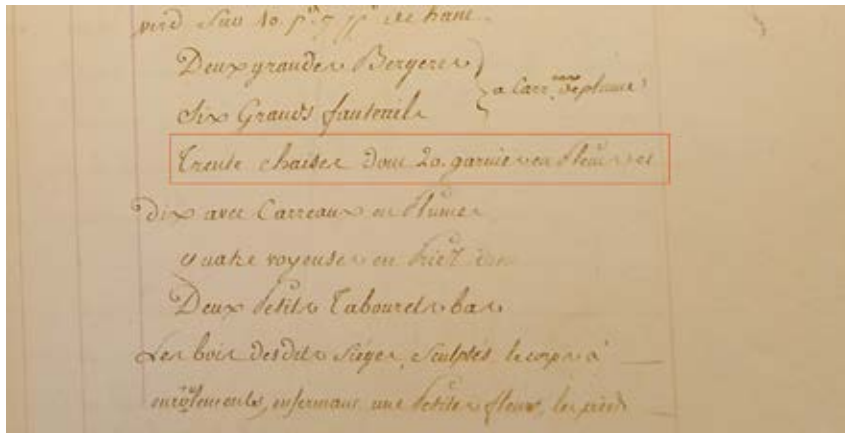 Deux grandes Bergeres
Six Grands fauteuils
a Carr.aux de plume
Trente chaises dont 20. garnies en plein et
dix avec Carreaux en Plumes
quatre voyeuses en
Deux Petits Tabourets bas
Les bois desdits sieges, Sculptés le corps a
enroulements, enfermant une Petite fleur, les pieds